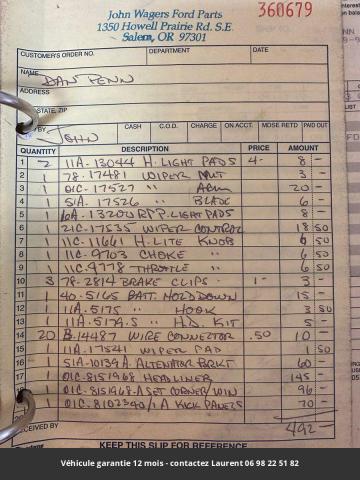 John Wagers Ford Parts
1350 Howell Prairie Rd. S.E.
Salem, OR 97301
360679
CUSTOMER'S ORDER NO. DEPARTMENT DATE
NAME DAN PENN
ADDRESS
STATE, ZIP
BY JOHN CASH C.O.D. CHARGE ON ACCT. MDSE RETD PAID OUT
QUANTITY DESCRIPTION PRICE AMOUNT
1 2 11A-13044 H. LIGHT PADS 4- 8 -
2 1 78-17481 WIPER NUT 3 -
3 1 01C-17527 " ARM 20 -
4 1 51A-17526 " BLADE 6 -
5 1 P.LIGHT PADS 8 -
6 1 21C-17535 WIPER CONTROL 18 50
7 1 11C-11661 H-LITE KNOB 6 50
8 1 11C-9703 CHOKE " 6 50
9 1 11C-9778 THROTTLE " 6 50
10 3 78-2814 BRAKE CLIPS - 1- 3 -
11 1 40-5165 BATT. HOLD DOWN 15 -
12 1 11A-5175 " HOOK 3 50
13 1 11A-5179.S " H.D. KIT 5 -
14 20 B-14487 WIRE CONNECTOR .50 10
15 1 11A-17541 WIPER PAD 1 50
16 1 51A-10139A ALTENATOR BRKT 60 -
17 1 01C-8151968 HEADLINER 145 -
1 01C-8151968-A SET CORNER/WIN 96 -
1 01C-8102340/1 A KICK PANELS 70 -
492 -
CEIVED BY
KEEP THIS SLIP FOR REFERENCE
Véhicule garantie 12 mois - contactez Laurent 06 98 22 51 82